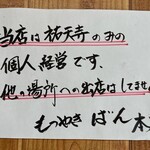 当店は祐天寺のみの
個人経営です.
他の場所への出店はしてませ
もつやき ばん 本